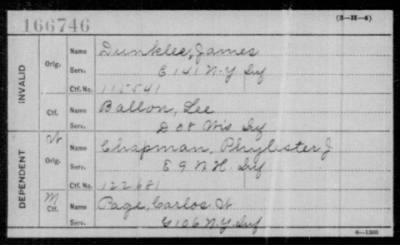 166746
(3-35-4)
INVALID
Orig. Name Dunklee, James
Serv. E 141 N-Y Inf
Ctf. No. 115541
Ctf. Name Ballon, Lee
Serv. D 08 Wis Inf
DEPENDENT
W Orig. Name Chapman, Phylester J
Serv. E 9 N.H. Inf
Ctf. No. 122681
M Ctf. Name Page, Carlos W
Serv. G 106 N.Y. Inf